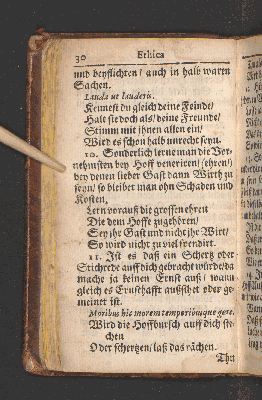 30 Ethica
und beypflichten / auch in halb waren
Sachen.
Lauda ut lauderis.
Kennest du gleich deine Feinde/
Halt sie doch als / deine Freunde/
Stimm mit ihnen allen ein/
Wird es schon halb unrecht seyn.
10. Sonderlich lerne man die Vor-
nehmsten bey Hoff veneriren / (ehren/)
bey denen lieber Gast dann Wirth zu
seyn / so bleibet man ohn Schaden und
Kosten,
Lern vorauß die grossen ehren
Die dem Hoffe zugehören/
Sey ihr Gast und nicht ihr Wirt/
So wird nicht zu viel spendirt.
11. Ist es daß ein Schertz oder
Stichrede auff dich gebracht würde / da
mache ja keinen Ernst auß / wann
gleich es Ernsthafft außsihet oder ge-
meinet ist.
Moribus hic morem temporibusque gere.
Wird die Hoffbursch auff dich ste-
chen
Oder schertzen / laß das rächen.
Thu